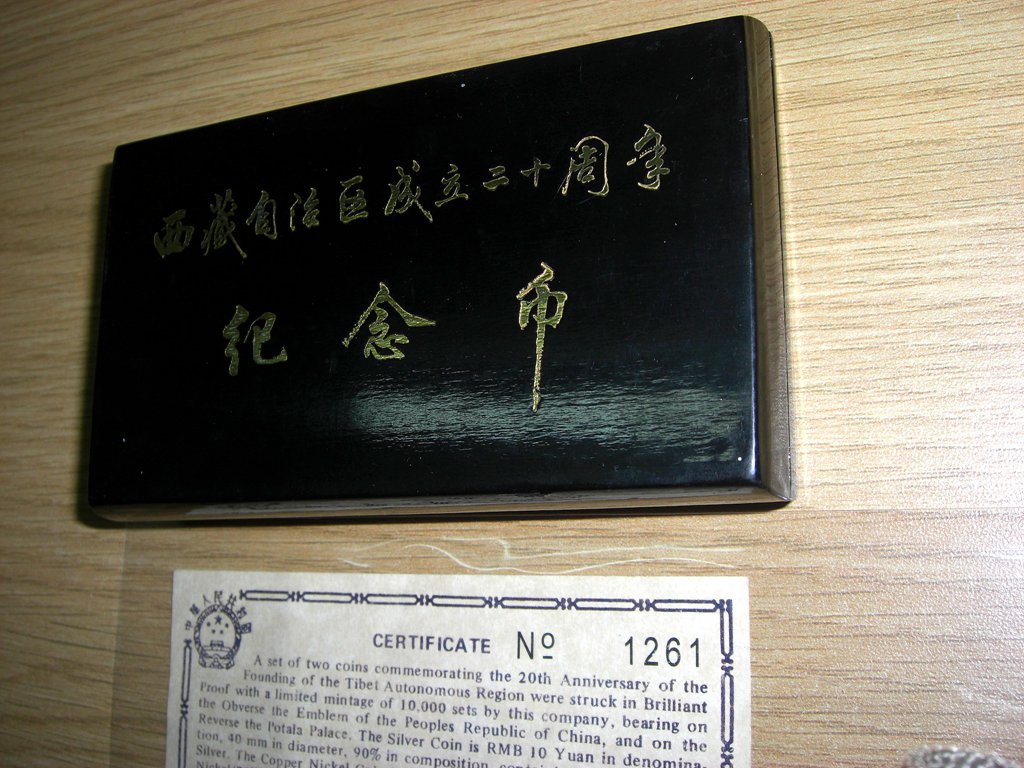 西藏自治区成立二十周年
纪念币
CERTIFICATE № 1261
A set of two coins commemorating the 20th Anniversary of the
Founding of the Tibet Autonomous Region were struck in Brilliant
Proof with a limited mintage of 10.000 sets by this company, bearing on
the Obverse the Emblem of the Peoples Republic of China, and on the
Reverse the Potala Palace. The Silver Coin is RMB 10 Yuan in denomina-
tion, 40 mm in diameter, 90% in composition,
Silver. The Copper Nickel